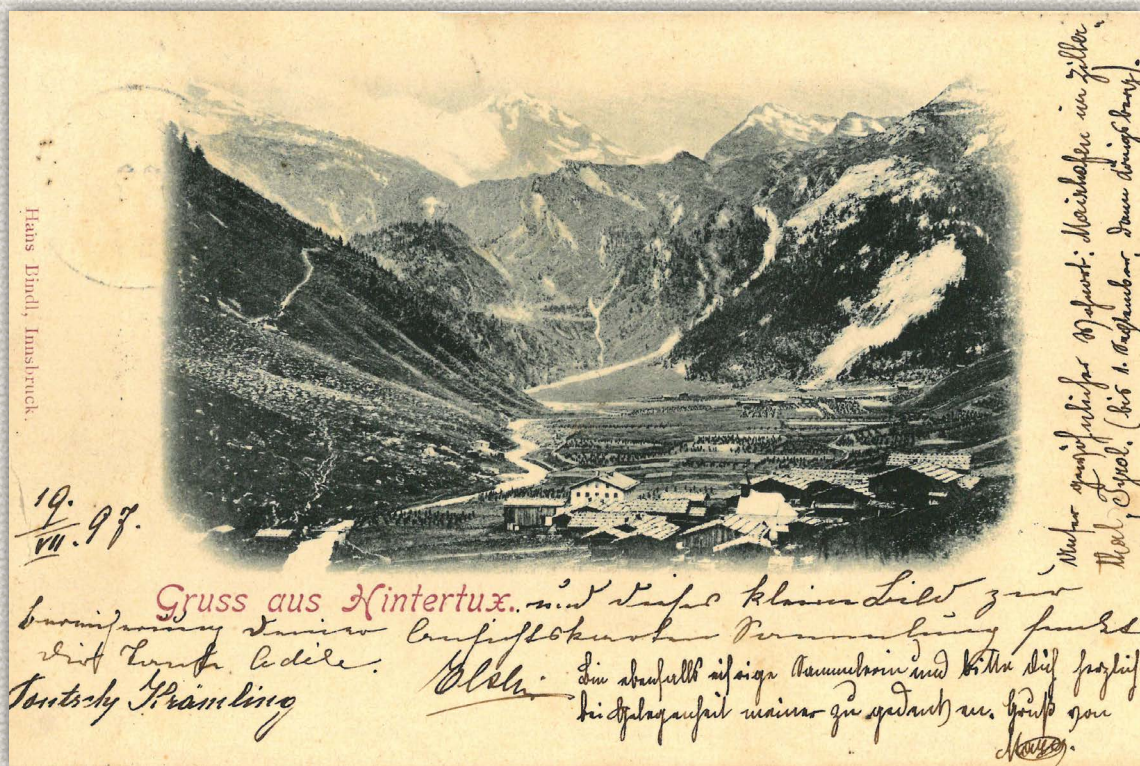 Hans Bindl, Innsbruck.
19.
VII. 97.
Gruss aus Hintertux. und dieses kleine Bild zur
Bereicherung Deiner Ansichtskarten Sammlung sendet
Dir Tante Adèle.
Elsa
Krämling
Bin ebenfalls eifrige Sammlerin und bitte Dich herzlich
bei Gelegenheit meiner zu gedenken. Gruß von
Unser Wohnort: Mairhofen im Ziller-
thal, Tyrol. (bis 1. September, dann Königsberg).